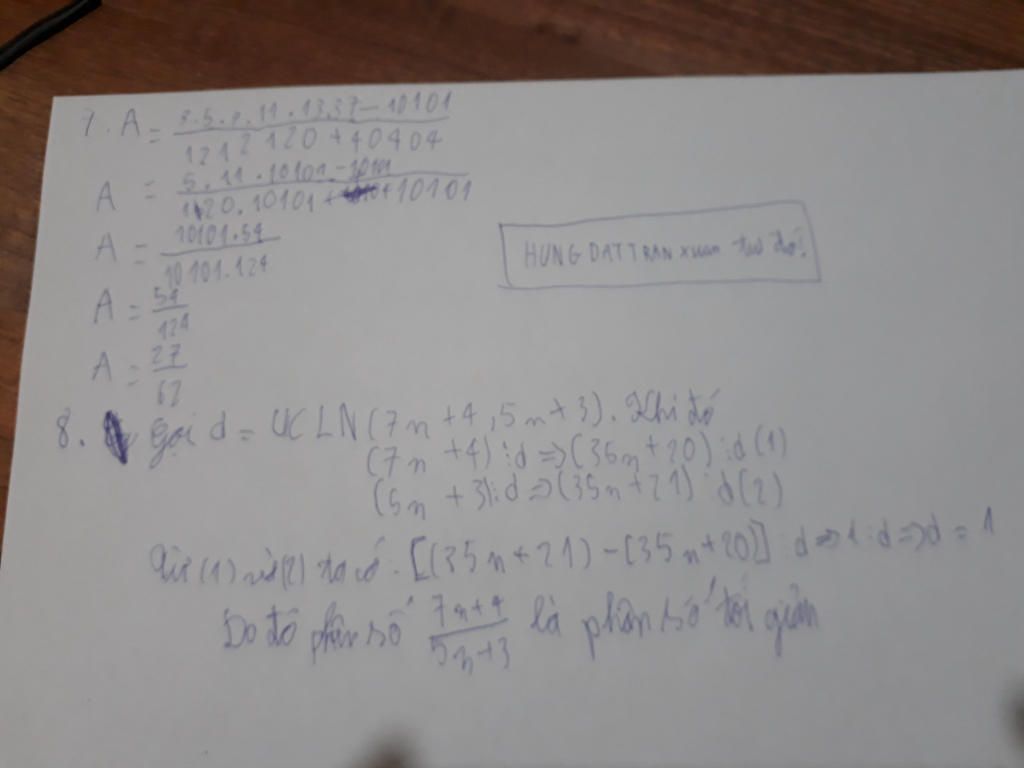 7. A = 3.5.7.11.13.37-10101 / 1212120+40404
A = 5.11.10101-10101 / 120.10101+10101
A = 10101.54 / 10101.124
A = 54/124
A = 27/62
HUNG DAT TRAN xuan
8. Gọi d = ƯCLN(7n+4,5n+3). Khi đó
(7n+4)⋮d⇒(35n+20)⋮d(1)
(5n+3)⋮d⇒(35n+21)⋮d(2)
Từ (1) và (2) ta có. [(35n+21)-(35n+20)]⋮d⇒1⋮d⇒d=1
Do đó phân số 7n+4/5n+3 là phân số tối giản